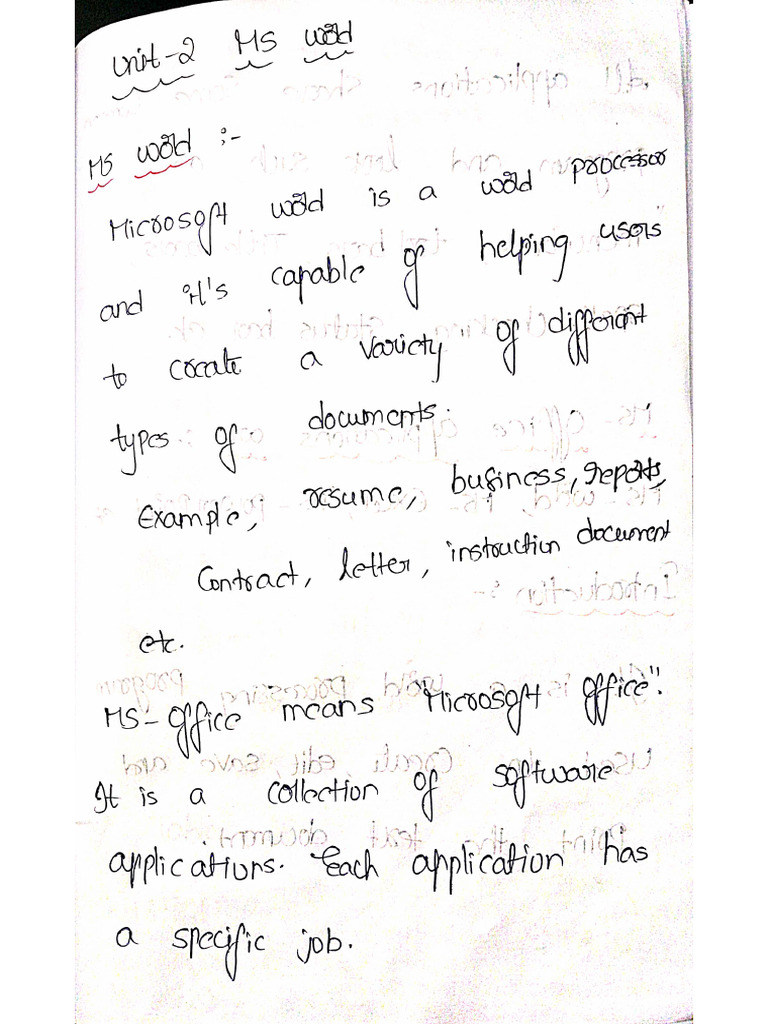 Unit-2 MS Word
MS Word :-
Microsoft word is a word processor
and it's capable of helping users
to create a variety of different
types of documents.
Example, resume, business, reports,
Contract, letter, instruction document
etc.
MS-Office means "Microsoft Office".
It is a collection of software
applications. Each application has
a specific job.